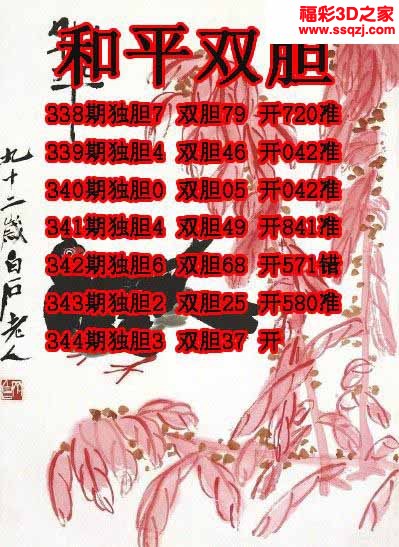 福彩3D之家
www.ssqzj.com
和平双胆
338期独胆7 双胆79 开720准
339期独胆4 双胆46 开042准
340期独胆0 双胆05 开042准
341期独胆4 双胆49 开841准
342期独胆6 双胆68 开571错
343期独胆2 双胆25 开580准
344期独胆3 双胆37 开
九十二岁白石老人